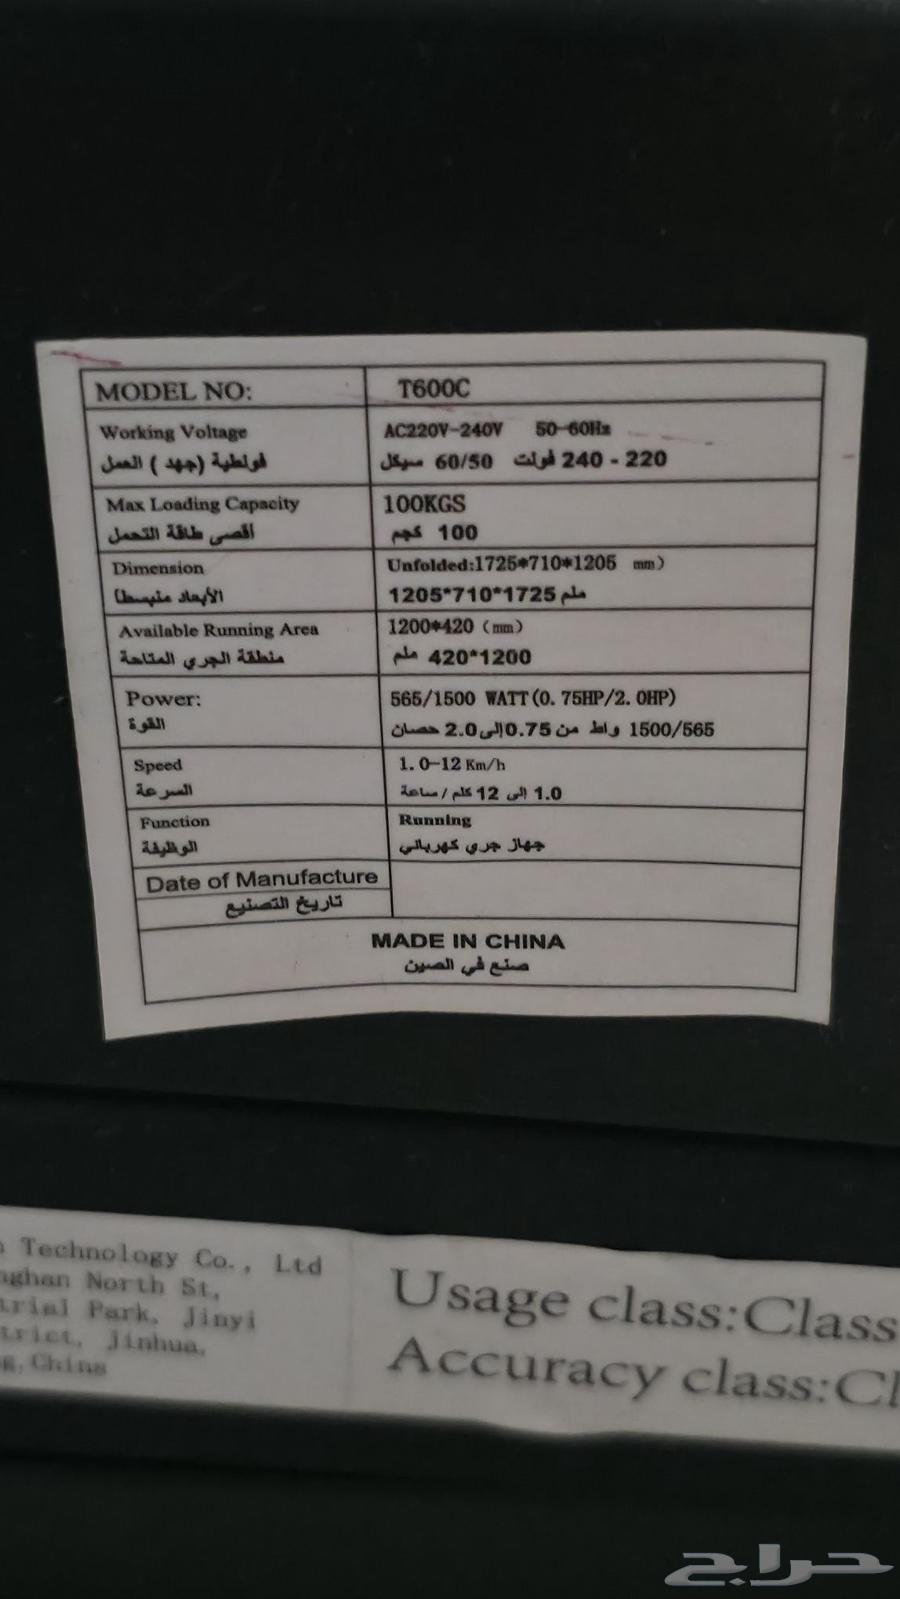 MODEL NO: T600C
Working Voltage AC220V-240V 50-60Hz
فولطية (جهد ) العمل 220 - 240 فولت 60/50 سيكل
Max Loading Capacity 100KGS
أقصى طاقة التحمل 100 كجم
Dimension Unfolded:1725*710*1205 mm)
الأبعاد منبسطا 1205*710*1725 ملم
Available Running Area 1200*420 (mm)
منطقة الجري المتاحة 420*1200 ملم
Power: 565/1500 WATT(0.75HP/2.0HP)
القوة 1500/565 واط من 0.75إلى2.0 حصان
Speed 1.0-12 Km/h
السرعة 1.0 إلى 12 كلم / ساعة
Function Running
الوظيفة جهاز جري كهربائي
Date of Manufacture
تاريخ التصنيع
MADE IN CHINA
صنع في الصين
Technology Co., Ltd
North St,
Park, Jinyi
Jinhua,
China
Usage class:Class
Accuracy class:
حراج